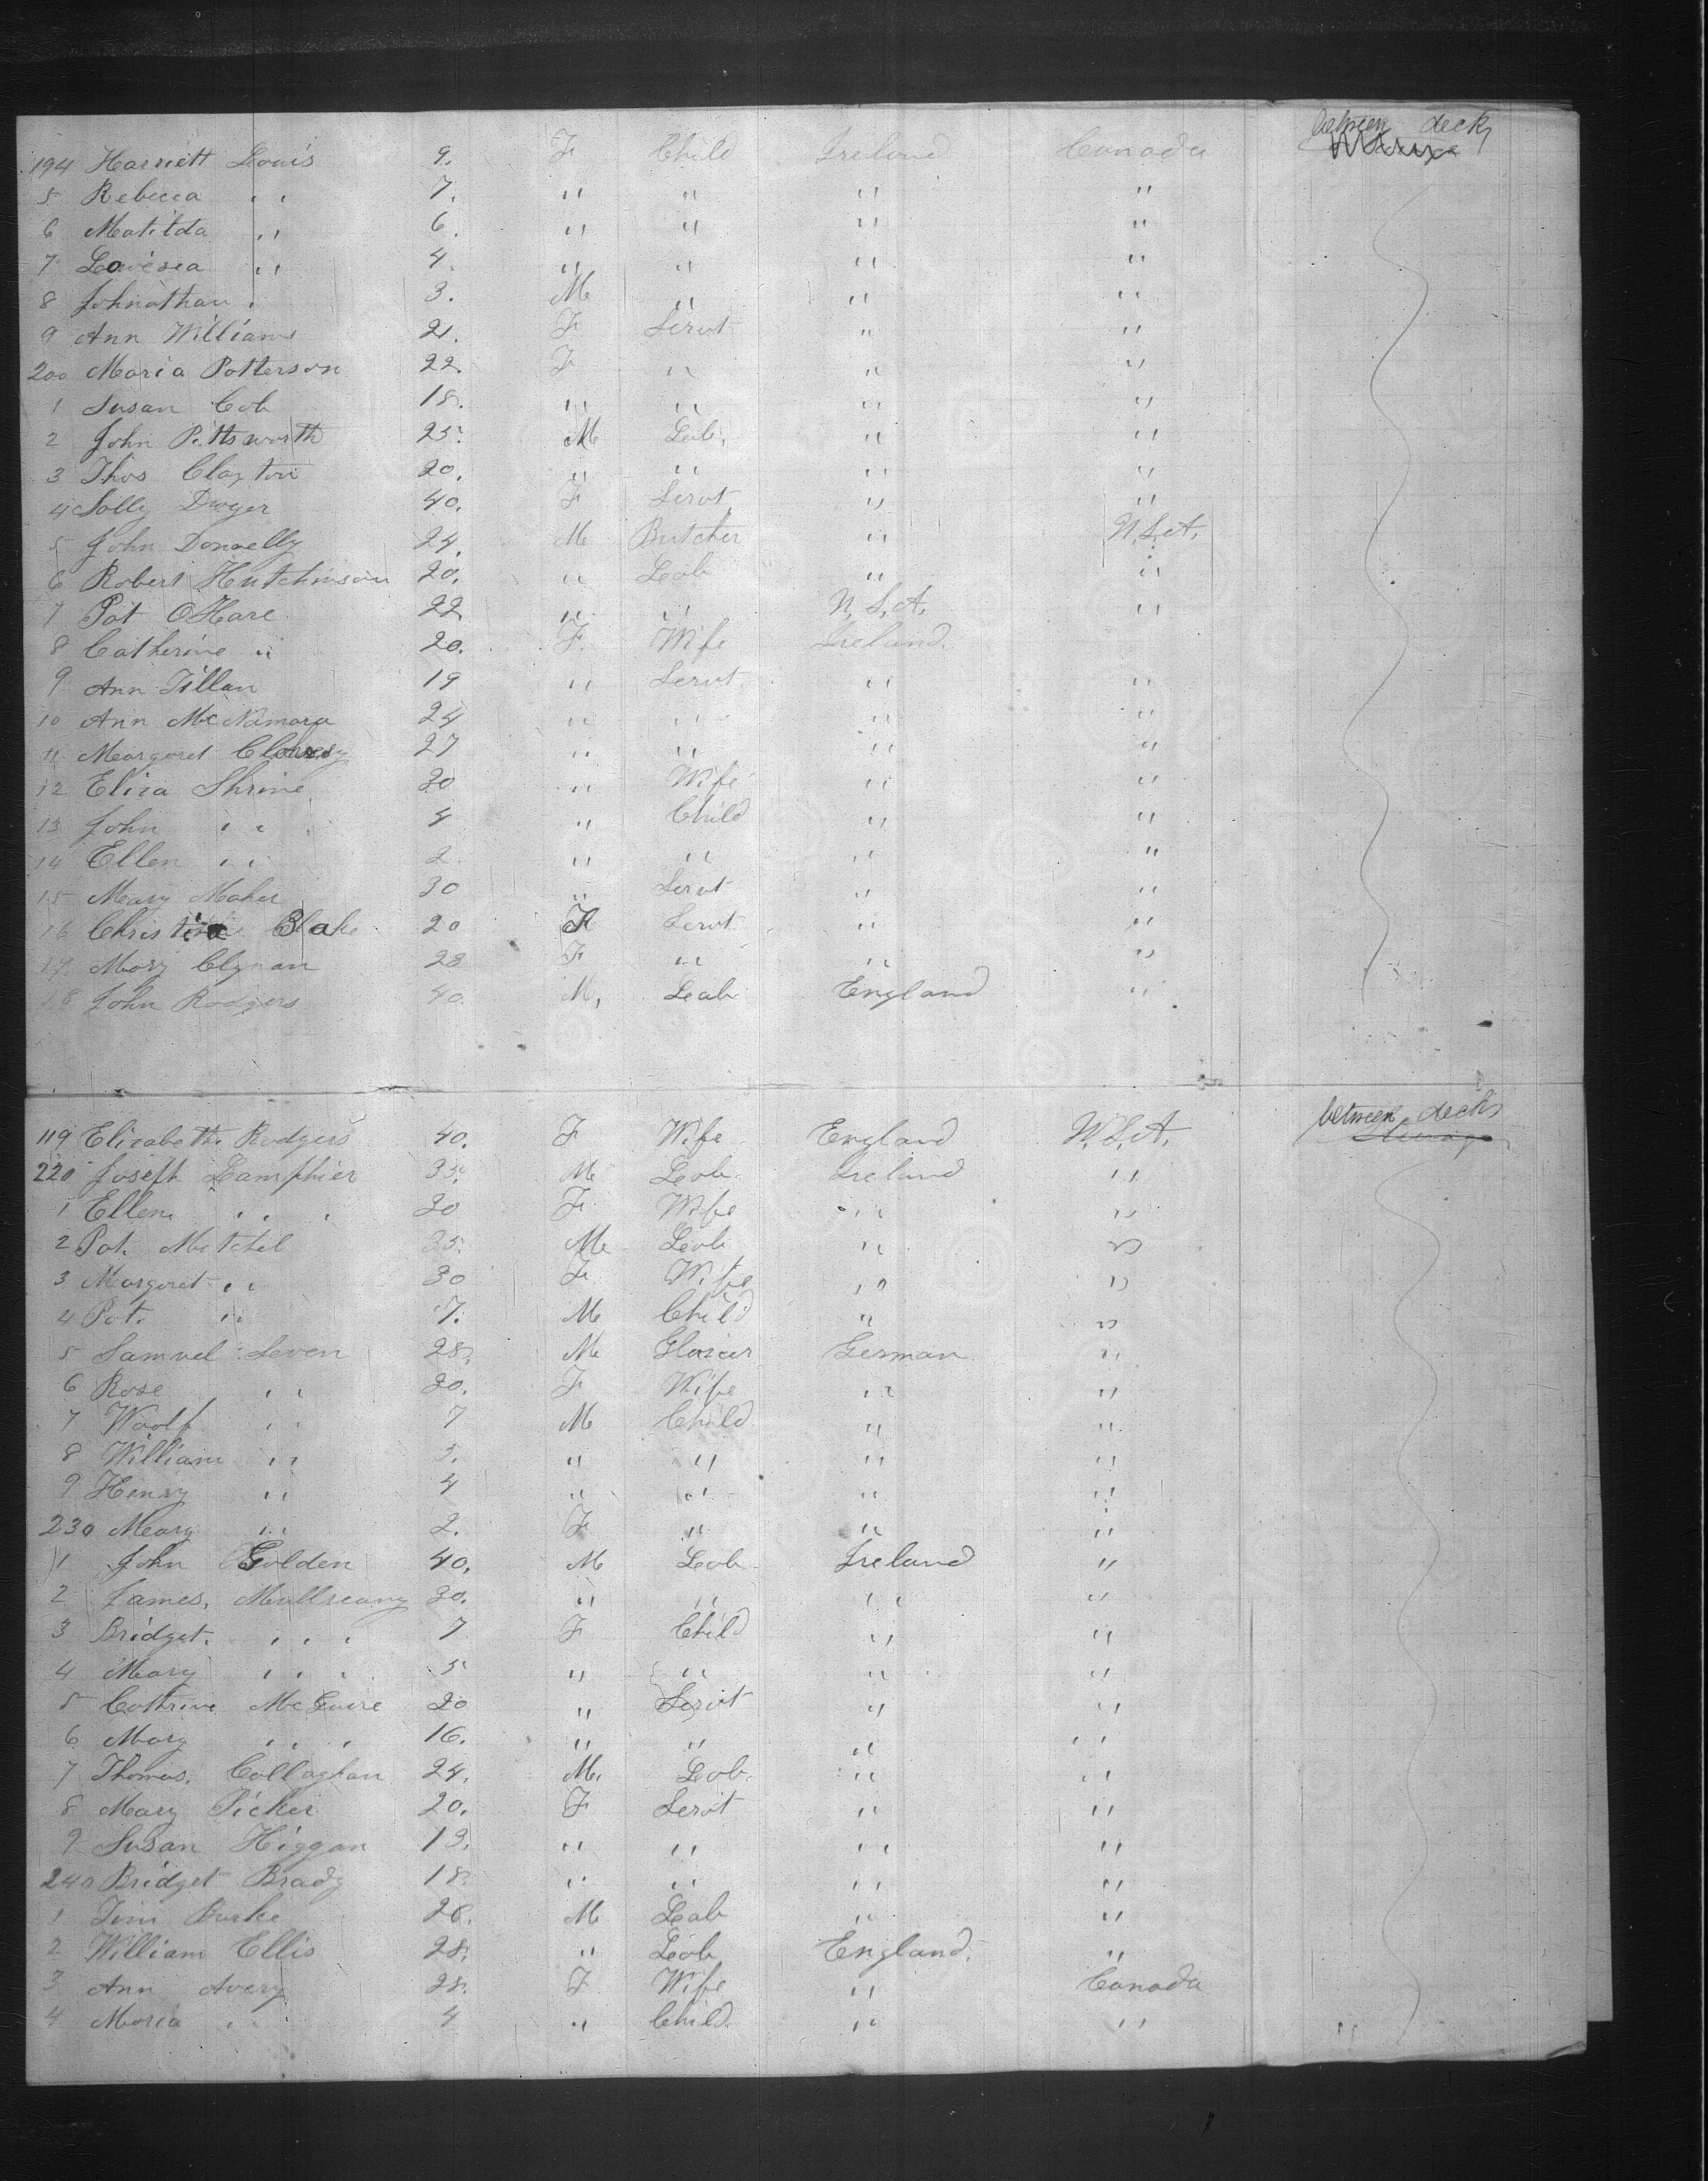 between decks
194 Harriett Louis 9. F Child Ireland Canada
5 Rebecca " 7. " " " "
6 Matilda " 6. " " " "
7 Lovisia " 4 " " " "
8 Johnathan " 3. M " " "
9 Ann Williams 21. F Servt " "
200 Maria Patterson 22. F " " "
1 Susan Cob 18. " " " "
2 John Pittsworth 25. M Lab. " "
3 Thos Clayton 20. " " " "
4 Solly Dwyer 40. F Servt " "
5 John Donnelly 24. M Butcher " U.S.A.
6 Robert Hutchinson 20. " Lab " "
7 Pat OHare 22 " " U.S.A. "
8 Catherine " 20. F. Wife Ireland.
9 Ann Tillan 19 " Servt " "
10 Ann McNamara 24 " " " "
11 Margaret 27 " " " "
12 Eliza Shrine 30 " Wife " "
13 John " 4 " Child " "
14 Ellen " 2 " " " "
15 Mary Maher 30 " Servt " "
16 Christina Blake 20 F Servt " "
17 Mary Clynan 28 F " " "
18 John Rodgers 40. M. Lab England "
between decks
119 Elizabeth Rodgers 40. F Wife England U.S.A.
220 Joseph Lamphier 35. M Lab. Ireland "
1 Ellen " 30 F Wife " "
2 Pat. Mitchel 35. M Lab " "
3 Margaret " 30 F Wife " "
4 Pat. " 7. M Child " "
5 Samuel Leven 28. M Glazier German "
6 Rose " 20. F Wife " "
7 Woolf " 7 M Child " "
8 William " 5. " " " "
9 Henry " 4 " " " "
230 Mary " 2. F " " "
1 John Golden 40. M Lab Ireland "
2 James, Mullreany 30. " " " "
3 Bridget. " 7 F Child " "
4 Mary " 5 " " " "
5 Cathrine McGuire 20 " Servt " "
6 Mary " 16. " " " "
7 Thomas. Callaghan 24. M. Lab. " "
8 Mary Picker 20. F Servt " "
9 Susan Higgan 13. " " " "
240 Bridget Brady 18. " " " "
1 Tim Burke 26. M Lab " "
2 William Ellis 28. " Lab England. "
3 Ann Avery 28. F Wife " Canada
4 Maria " 4 " Child. " " "